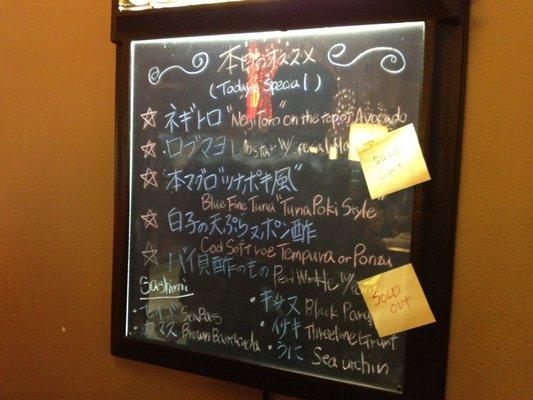 本日のオススメ
(Today's Special)
☆ ネギトロ "Negi Toro on the top of Avocado
☆ ロブマヨ Lobster w/
☆ "本マグロ"ツナポキ風"
Blue Fine Tuna "Tuna Poki Style"
☆ 白子の天ぷら or ポン酢
Cod Soft roe Tempura or Ponzu
☆ バイ貝酢のもの Peri Winkle w/
Sashimi
Sea Bass
カマス Brown Barracuda
キチヌ Black
イサキ Threeline Grunt
うに Sea urchin
Sold
out
SOLD
OUT